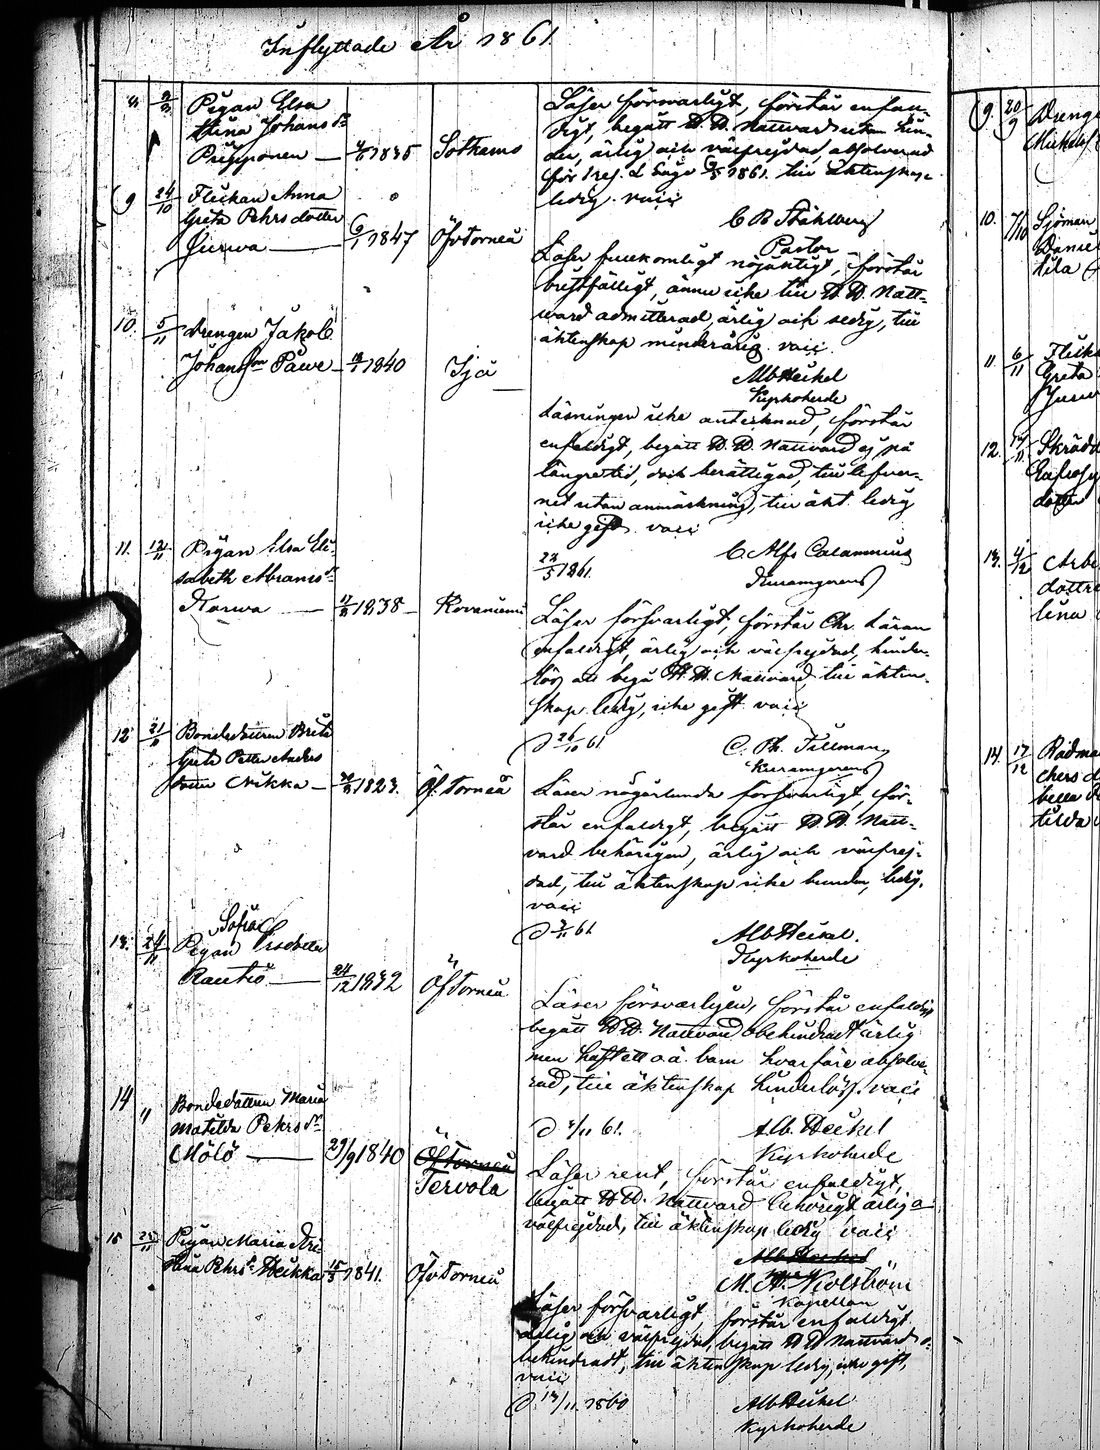 Inflyttade År 1861
Pigan Elsa
Stina Johans dr
Pupponen
1835
Sotkamo
Läser försvarligt, förstår enfal-
digt, begått H. H. Nattvard utan hin-
der, ärlig och välfrejdad, absolverad
för 1 resa L. Säge 1861. till äktenskap
ledig. vaii
C B Ståhlberg
Pastor
9
24/10
Flickan Anna
Greta Pehrs dotter
Juiwa
6/1 1847
Öfv Torneå
Läser till nöjaktigt, förstår
bristfälligt, ännu icke till H. H. Natt-
ward admitterad, ärlig och sedig, till
äktenskap minderårig. vaii
Alb Heikel
Kyrkoherde
10.
5/11
drengen Jakob
Johansson Pawe
1840
Ijå
Läsningen icke antecknad, förstår
enfaldigt, begått H. H. Nattvard ej på
längre tid, dock berättigad, till lefver-
net utan anmärkning, till äkt. ledig
icke gift. vaii
23/5 1861.
C Alfr Calamnius
11.
12/11
Pigan Elsa Eli-
sabeth Abrams dr
Karwa
1838
Rovaniemi
Läser försvarligt, förstår Chr. Läran
enfaldigt, ärlig och välfrejdad, hinder-
lös att begå H. H. Nattvard, till äkten-
skap ledig, icke gift vaii
d 26/10 61
C. Ph. Tillman
12
21/11
Bondedottren Brita
Greta Petter Anders
dotter Nikka
1823.
Öf. Torneå
Läser någorlunda försvarligt, för-
står enfaldigt, begått H. H. Natt-
vard behörigen, ärlig och välfrej-
dad, till äktenskap icke bunden, ledig.
vaii
61
Alb Heikel.
Kyrkoherde
13.
24/11
Sofia
Pigan Lisabeta
Rautio
24/12 1832
Öf Torneå
Läser försvarligen, förstår enfaldigt
begått H. H. Nattvard obehindradt ärlig
men haft ett o. ä. barn hvarföre absolve-
rad, till äktenskap hinderlös. vaii
d 61.
Alb. Heikel
Kyrkoherde
14
"
Bondedottren Maria
Matilda Pehrs dr
Mölö
29/9 1840
Öf Torneå
Tervola
Läser rent, förstår enfaldigt,
begått H. H. Nattvard behörigt ärlig o
välfrejdad, till äktenskap ledig vaii
Alb Heikel
M. A. Nivlström
Kapellan
15
25/11
Pigan Maria Kri
stina Pehrs dr Heikka
1841.
Öfv Torneå
Läser försvarligt, förstår enfaldigt
ärlig och välfrejdad, begått H H Nattvard o-
behindradt, till äktenskap ledig, icke gift,
vaii
d. 13/11 1860
Alb Heikel
Kyrkoherde
9.
20/9
Dreng
10.
7/10
Sjöman
Daniel
11
6/11
Flicka
Greta
12.
Skrädd
dotter
13.
4/12
Arbe
dottre
lina
14.
17/12
Rådma
chers d
bella
tilda